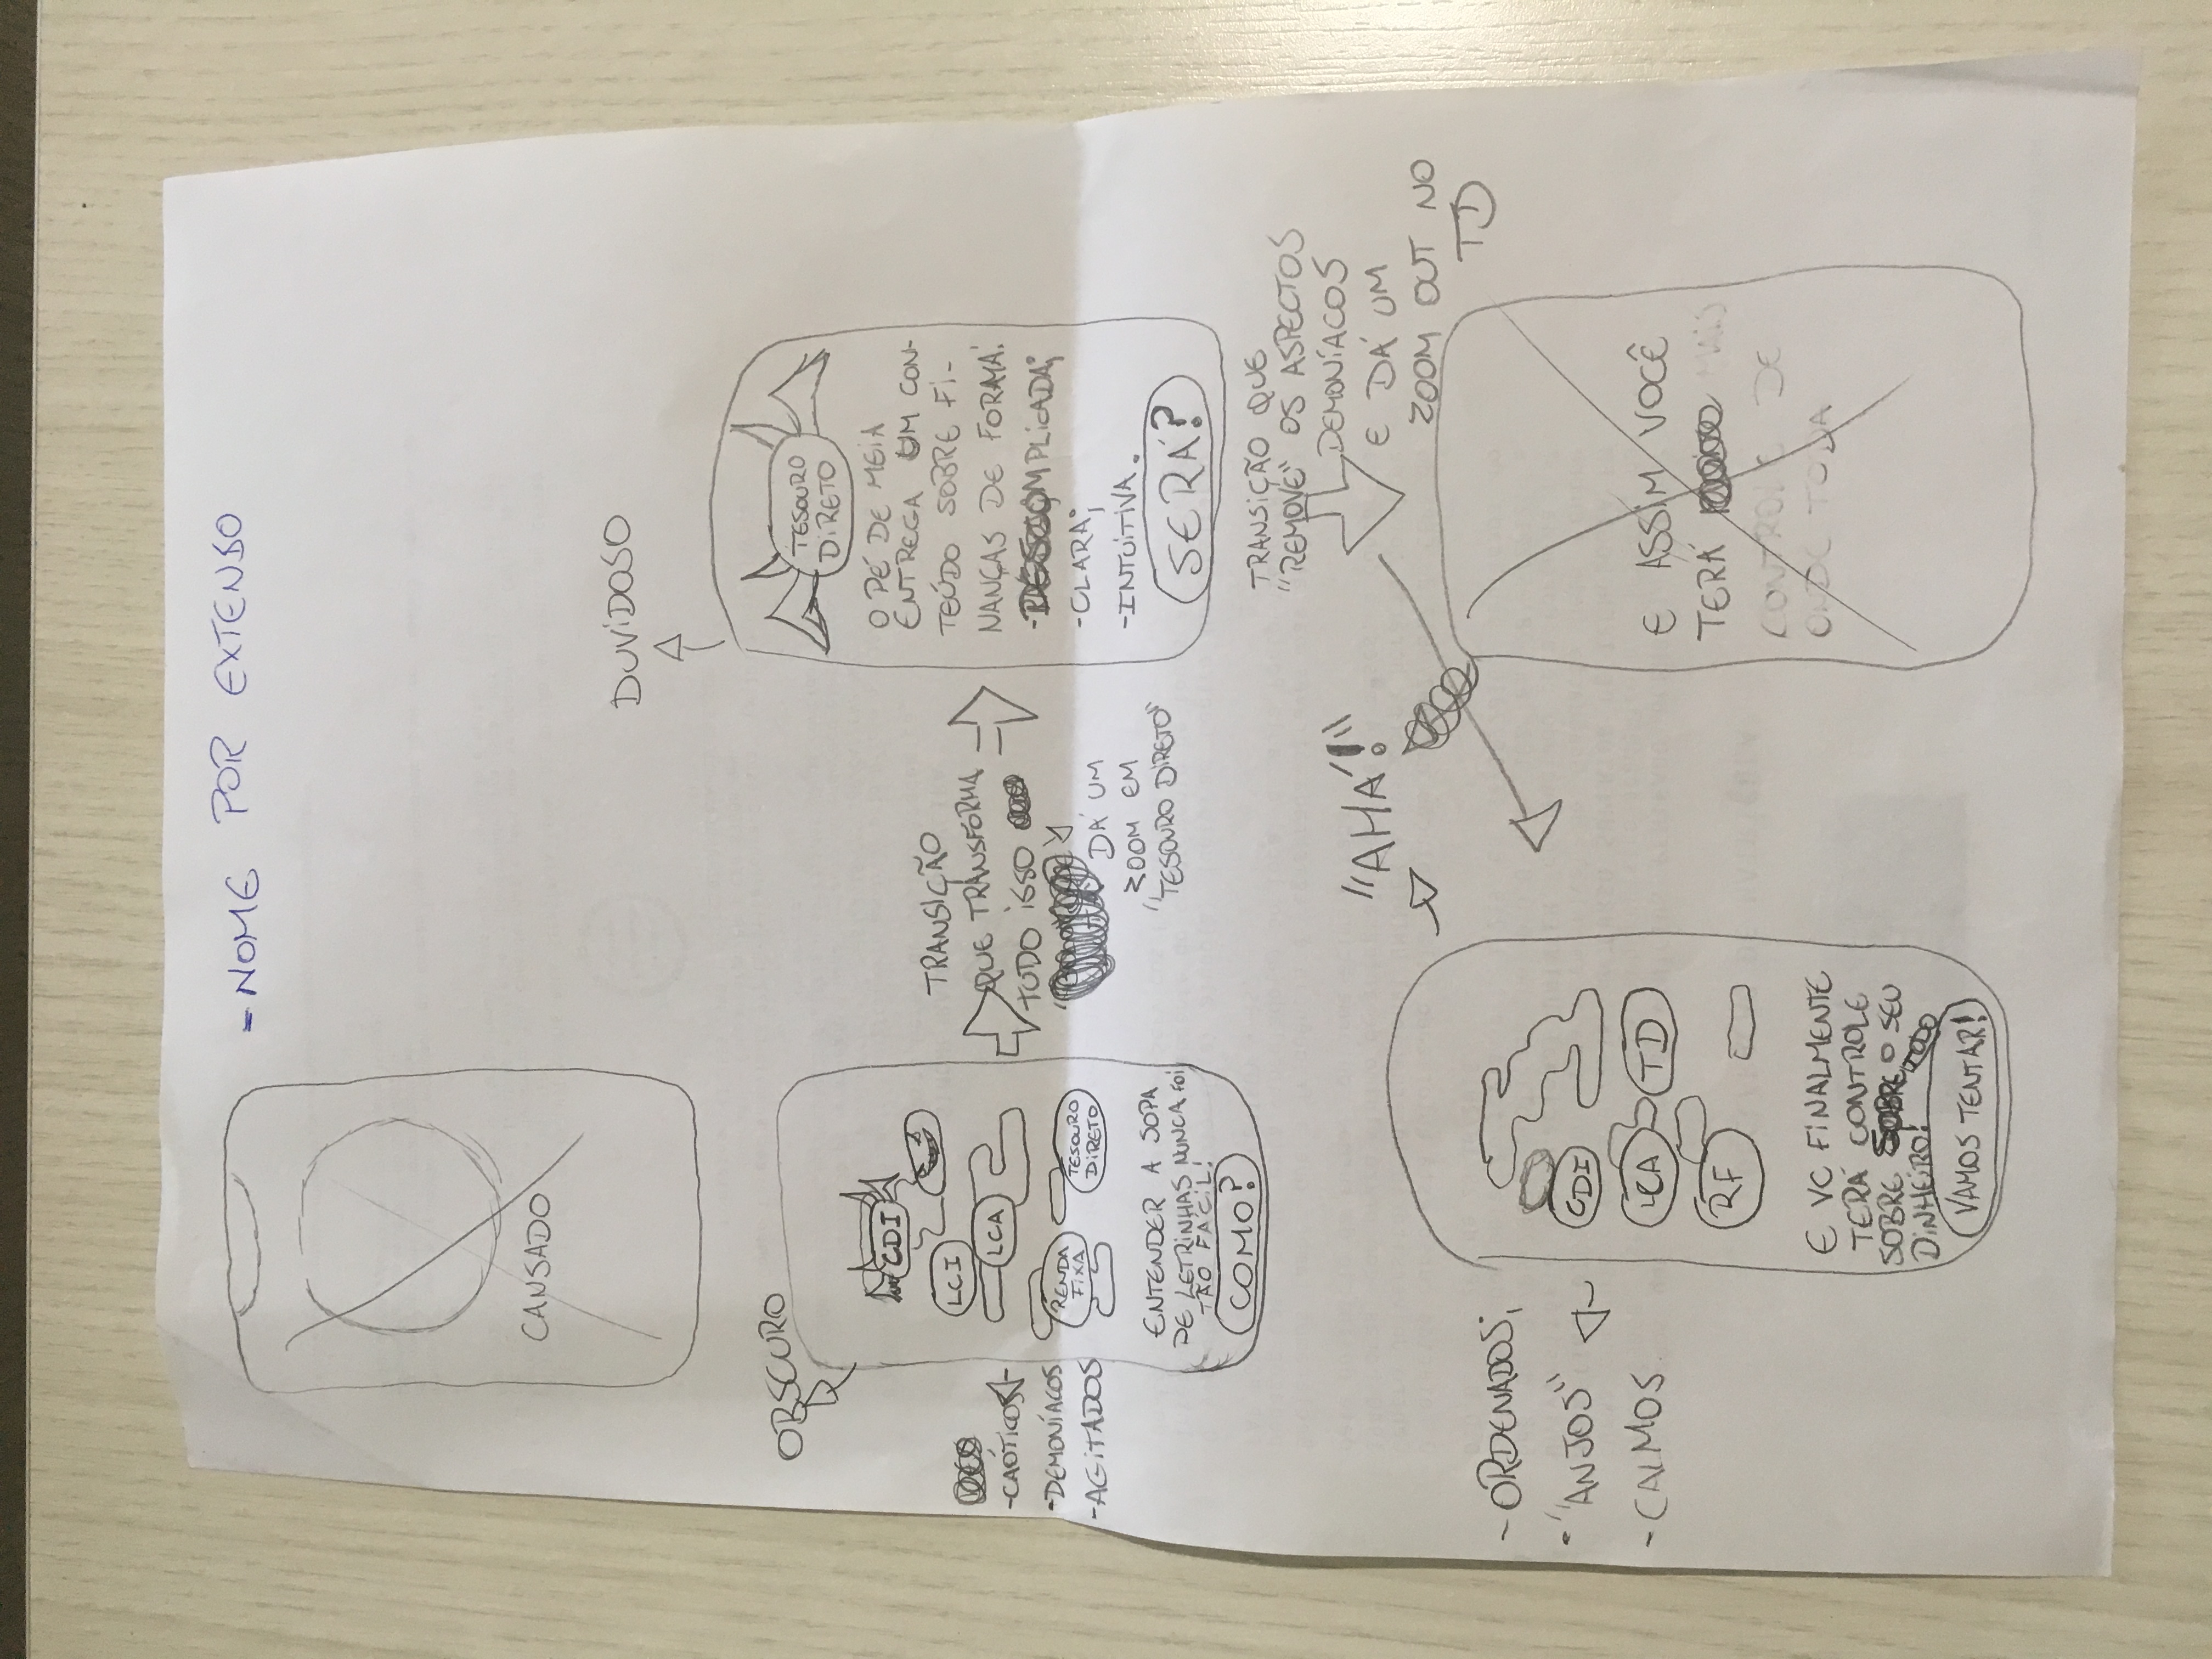 -NOME POR EXTENSO
CANSADO
DUVIDOSO
OBSCURO
CDI
LCI
LCA
RENDA
FIXA
TESOURO
DIRETO
-CAÓTICOS
-DEMONÍACOS
-AGITADOS
ENTENDER A SOPA
DE LETRINHAS NUNCA FOI
TÃO FÁCIL!
COMO?
TRANSIÇÃO
QUE TRANSFORMA
TUDO ISSO
DÁ UM
ZOOM EM
"TESOURO DIRETO"
TESOURO
DIRETO
O PÉ DE MEIA
ENTREGA UM CON-
TEÚDO SOBRE FI-
NANÇAS DE FORMA:
-DESCOMPLICADA;
-CLARA;
-INTUITIVA.
SERÁ?
TRANSIÇÃO QUE
"REMOVE" OS ASPECTOS
DEMONÍACOS
E DÁ UM
ZOOM OUT NO
TD
"AHÁ!"
-ORDENADOS;
-"ANJOS"
-CALMOS
CDI
LCA
TD
RF
E VC FINALMENTE
TERÁ CONTROLE
SOBRE SOBRE O SEU
DINHEIRO!
VAMOS TENTAR!
E ASSIM VOCÊ
TERÁ MAIS
CONTROLE DE
ONDE TODA